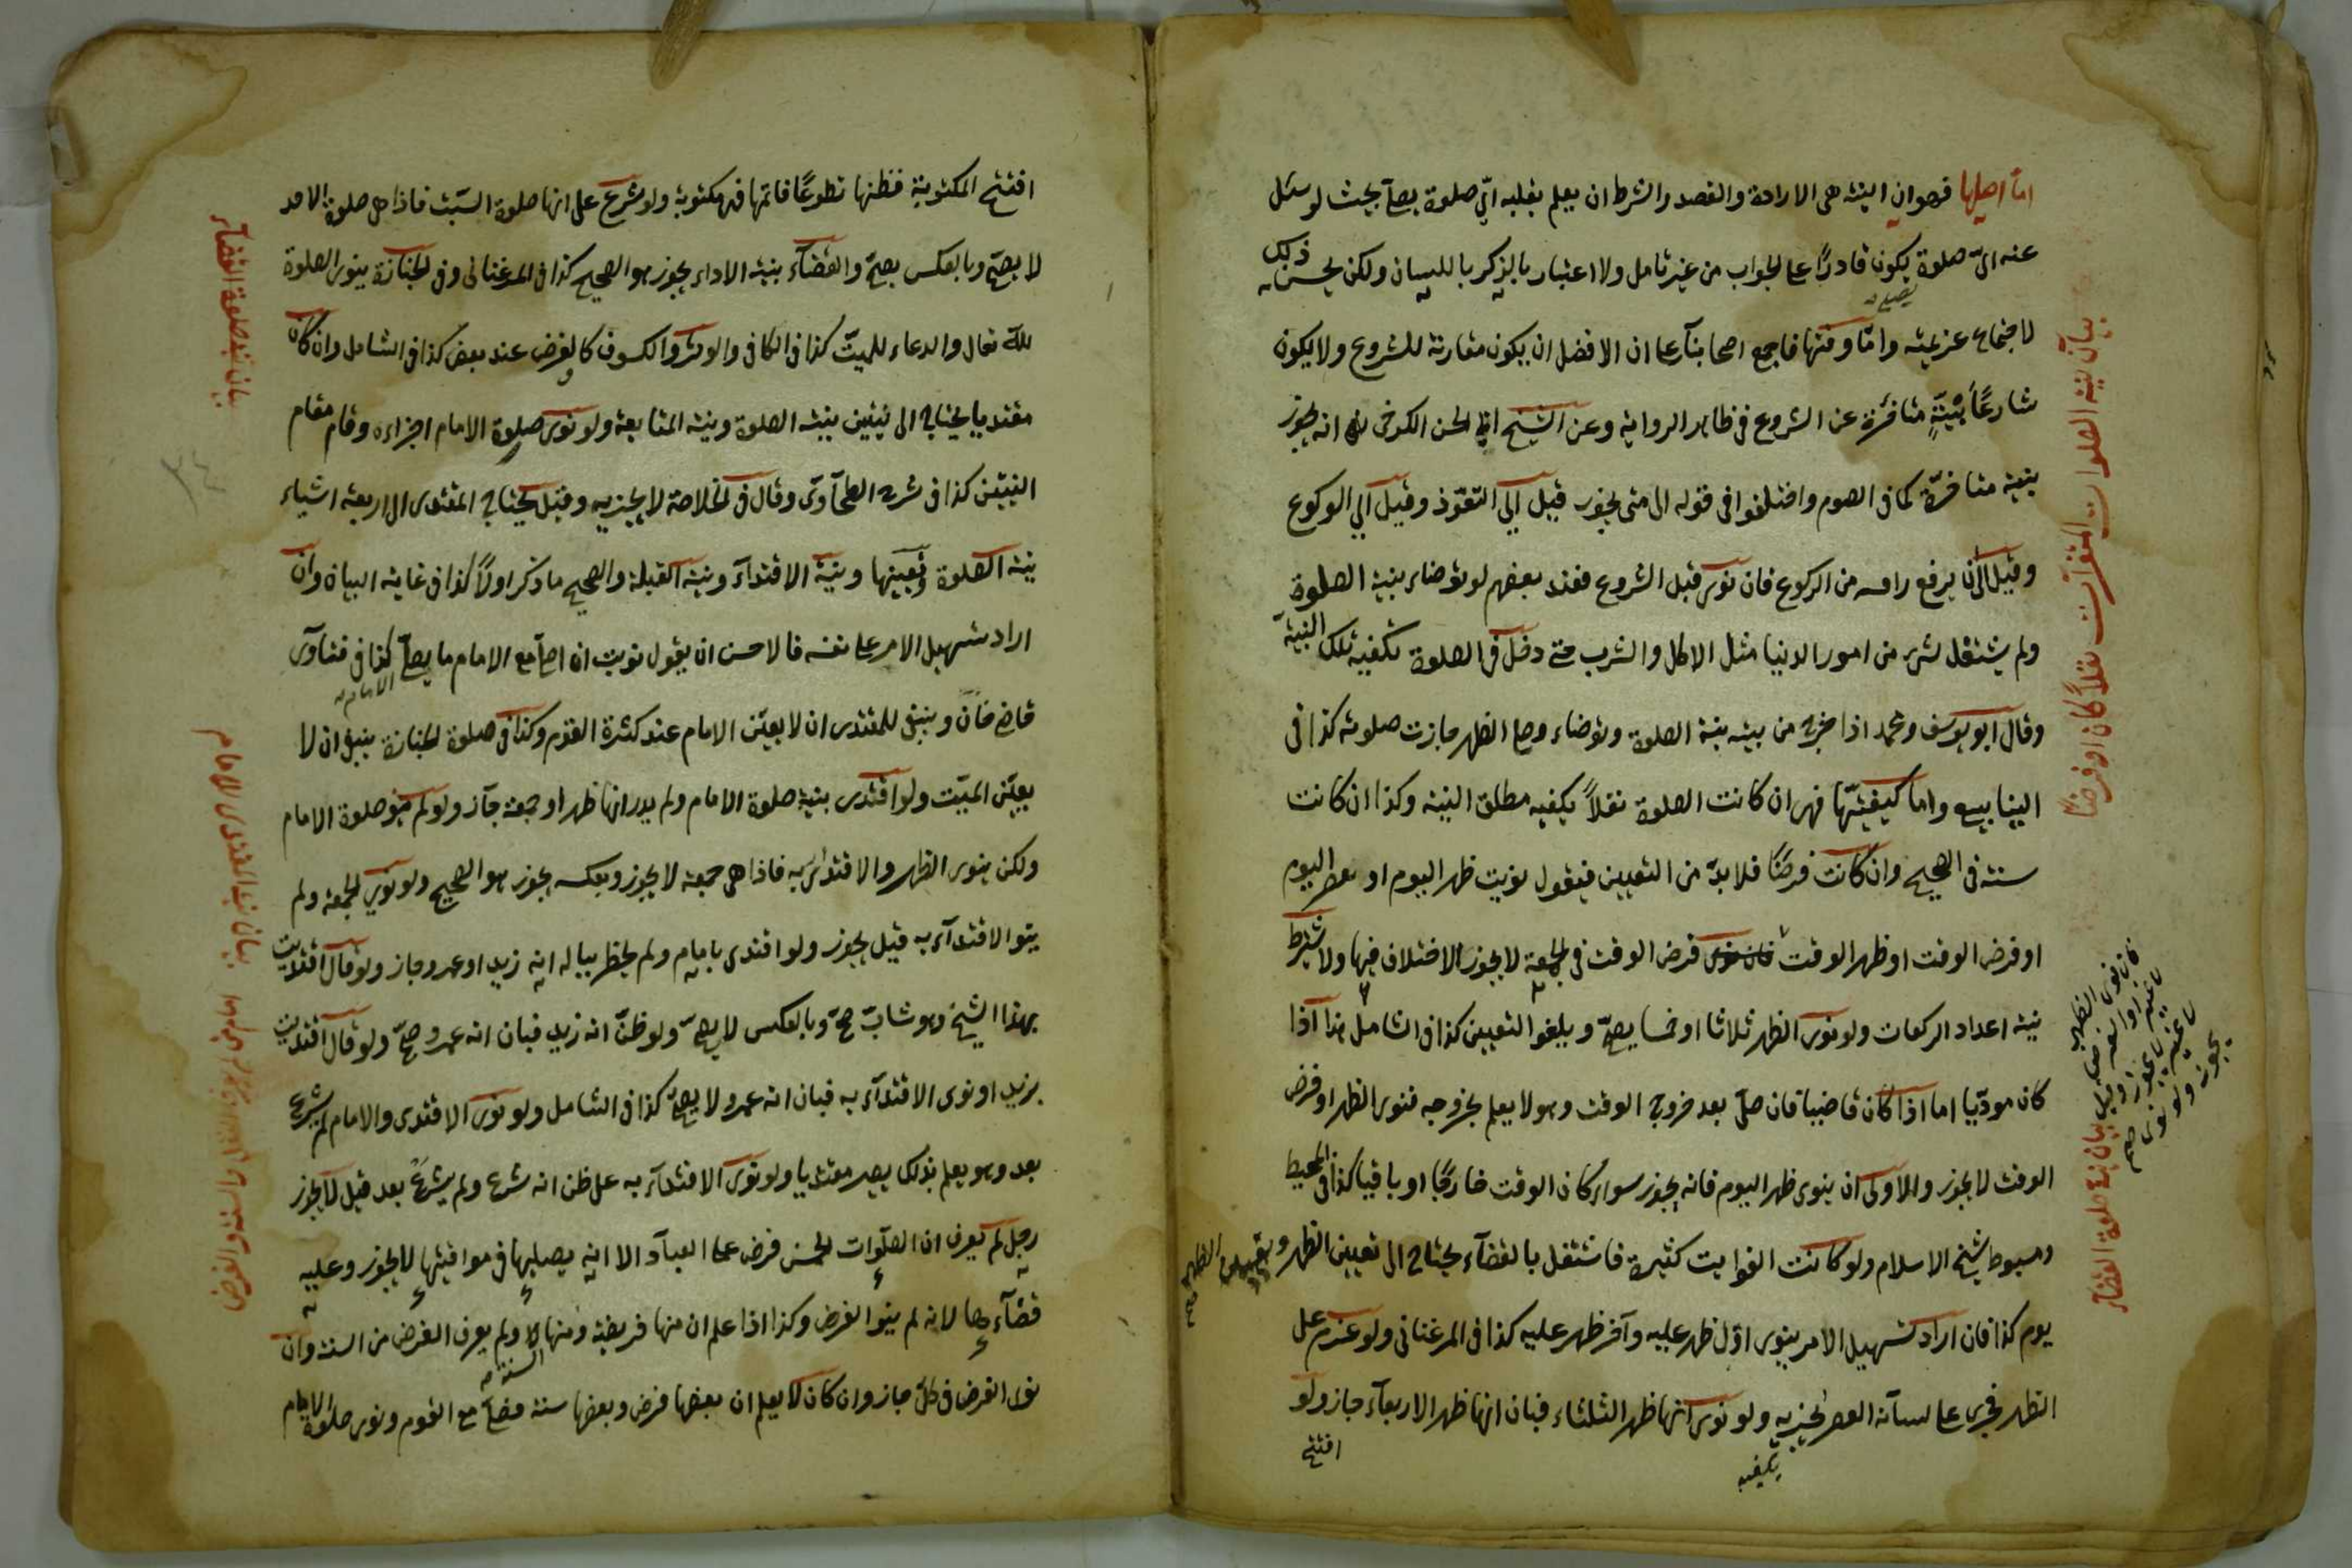 اما اصلها فهو ان النية هى الارادة والقصد والشرط ان يعلم بقلبه اىّ صلوة يصلّ بحيث لو سئل
عنه اىّ صلوة يكون قادرًا على الجواب من غير تأمل ولا اعتبار بالذكر باللسان ولكن يحسن ذلك
لاجتماع عزيمته واما وقتها فاجمع اصحابنا على ان الافضل ان يكون مقارنة للشروع ولا يكون
شارعًا بنيّةٍ متأخرة عن الشروع فى ظاهر الرواية وعن الشيخ ابى الحسن الكرخى انه يجوز
بنية متأخرة كما فى الصوم واختلفوا فى قوله الى متى يجوز قيل الى التعوّذ وقيل الى الركوع
وقيل الى ان يرفع راسه من الركوع فان نوى قبل الشروع فعند بعضهم لو توضاء بنية الصلوة
ولم يشتغل بشئ من امور الدنيا مثل الاكل والشرب حتى دخل فى الصلوة تكفيه تلك النية
وقال ابو يوسف ومحمد اذا خرج من بيته بنية الصلوة وتوضاء وصلى الظهر جازت صلوته كذا فى
الينابيع واما كيفيتها فهى ان كانت الصلوة نفلاً يكفيه مطلق النية وكذا ان كانت
سنة فى الصحيح وان كانت فرضًا فلا بدّ من التعيين فيقول نويت ظهر اليوم او عصر اليوم
او فرض الوقت او ظهر الوقت فان نوى فرض الوقت فى الجمعة لا يجوز الاختلاف فيها ولا يشترط
نية اعداد الركعات ولو نوى الظهر ثلاثا او خمسا يصحّ ويلغو التعيين كذا فى الشامل هذا اذا
كان مودّيا اما اذا كان قاضيا فان صلّى بعد خروج الوقت وهو لا يعلم بخروجه فنوى الظهر او فرض
الوقت لا يجوز والاولى ان ينوى ظهر اليوم فانه يجوز سواء كان الوقت خارجًا او باقيا كذا فى المحيط
ومبسوط شيخ الاسلام ولو كانت الفوايت كثيرة فاشتغل بالقضآء يحتاج الى تعيين الظهر
يوم كذا فان اراد تسهيل الامر ينوى اوّل ظهر عليه وآخر ظهر عليه كذا فى المرغنانى ولو عزم على
الظهر فجرى على لسانه العصر يجزيه ولو نوى انها ظهر الثلثاء فبان انها ظهر الاربعآء جاز ولو
افتتح
يكفيه
بيان نية الصلوات نفلاً كان او فرضًا
بيان نية صلوة القضآء
افتتح المكتوبة فظنها تطوعًا فاتمها فهى مكتوبة ولو شرع على انها صلوة السبت فاذا هى صلوة الاحد
لا يصحّ وبالعكس يصحّ والقضآء بنية الاداء يجوز هو الصحيح كذا فى المرغنانى وفى الجنازة ينوى الصلوة
للّه تعالى والدعاء للميت كذا فى الكافى والوتر والكسوف كالفرض عند بعض كذا فى الشامل وان كان
مقتديا يحتاج الى نيتين بنية الصلوة ونية المتابعة ولو نوى صلوة الامام اجزاءه وقام مقام
النيتين كذا فى شرح الطحاوى وقال فى الخلاصة لا يجزيه وقيل يحتاج المقتدى الى اربعة اشياء
نية الصلوة وتعيينها ونية الاقتدآء ونية القبلة والصحيح ما ذكر اولاً كذا فى غاية البيان وان
اراد تسهيل الامر على نفسه فالاحسن ان يقول نويت ان اصلّى مع الامام ما يصلّى الامام كذا فى فتاوى
قاضى خان وينبغى للمقتدى ان لا يعيّن الامام عند كثرة القوم وكذا فى صلوة الجنازة ينبغى ان لا
يعيّن الميّت ولو اقتدى بنية صلوة الامام ولم يدر انها ظهر او جمعة جاز ولو لم ينو صلوة الامام
ولكن ينوى الظهر والاقتداء به فاذا هى جمعة لا يجوز وبعكسه يجوز هو الصحيح ولو نوى الجمعة ولم
ينو الاقتدآء به قيل يجوز ولو اقتدى بامام ولم يخطر بباله انه زيد او عمرو جاز ولو قال اقتديت
بهذا الشيخ وهو شابّ صحّ وبالعكس لا يصحّ ولو ظنّ انه زيد فبان انه عمرو صحّ ولو قال اقتديت
بزيد او نوى الاقتدآء به فبان انه عمرو لا يصحّ كذا فى الشامل ولو نوى الاقتدى والامام لم يشرع
بعد وهو يعلم بذلك يصير مقتديا ولو نوى الاقتدآء به على ظن انه شرع ولم يشرع بعد قيل لا يجوز
رجل لم يعرف ان الصلوات الخمس فرض على العباد الا انه يصليها فى مواقيتها لا يجوز وعليه
قضآءها لانه لم ينو الفرض وكذا اذا علم ان منها فريضة ومنها السنة ولم يعرف الفرض من السنة وان
نوى الفرض فى كلّ جاز وان كان لا يعلم ان بعضها فرض وبعضها سنة فصلّى مع القوم ونوى صلوة الامام
بيان نية صلوة القضآء
بيان نية المقتدى للامام
٣٤